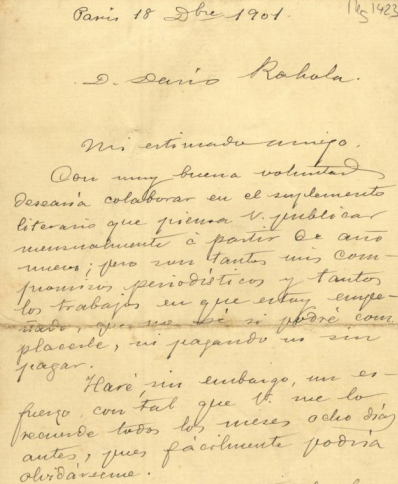 Ms 1423
Paris 18 Dbre 1901
D. Dario Rahola.
Mi estimado amigo.
Con muy buena voluntad
desearia colaborar en el suplemento
literario que piensa V. publicar
mensualmente à partir de año
nuevo; pero son tantos mis com-
promisos periodísticos y tantos
los trabajos en que estoy empe-
ñado, que no sé si podré com-
placerle, ni pagando ni sin
pagar.
Haré, sin embargo, un es-
fuerzo con tal que V. me lo
recuerde todos los meses ocho días
antes, pues fácilmente podría
olvidárseme.